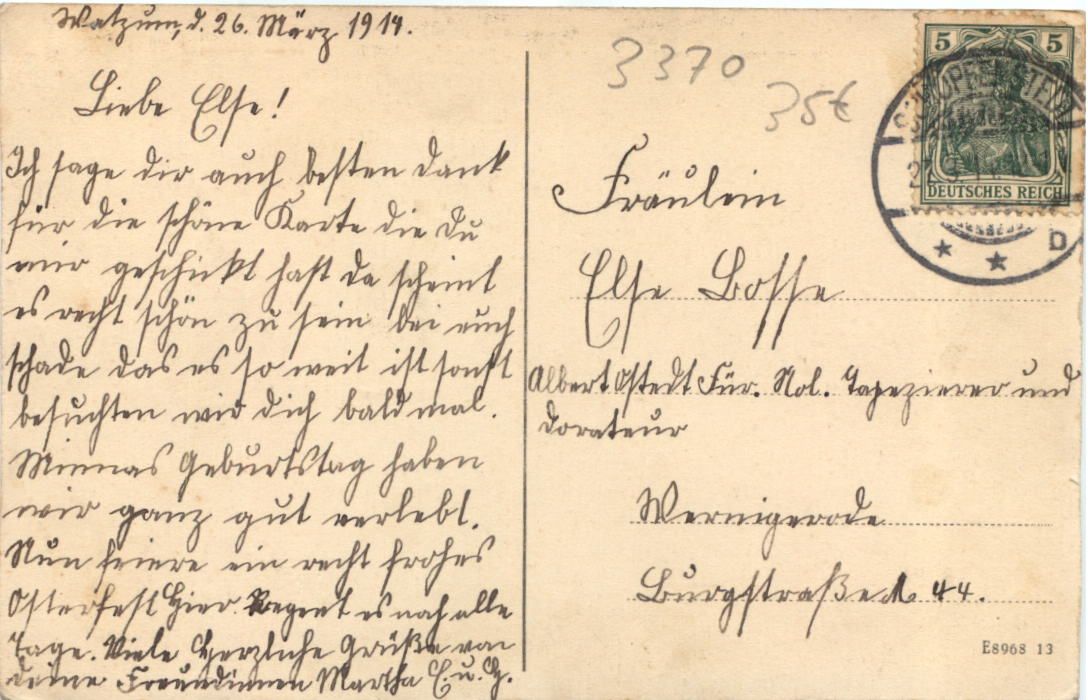 Watzum, d. 26. März 1914.
Liebe Else!
Ich sage dir auch besten Dank
für die schöne Karte die Du
mir geschickt hast da scheint
es recht schön zu sein bei euch
schade das es so weit ist sonst
besuchten wir dich bald mal.
Minnas Geburtstag haben
wir ganz gut verlebt.
Nun feiere ein recht frohes
Osterfest Hier Regent es nah alle
Tage. Viele Herzliche Grüße von
deine Freundinnen Martha E. u. H.
3370
35€
5 5
DEUTSCHES REICH
D
Fräulein
Else Bosse
Albert Ostedt Für. Nol. Tapezierer und
Dorateur
Wernigerode
Burgstraße 44.
E8968 13